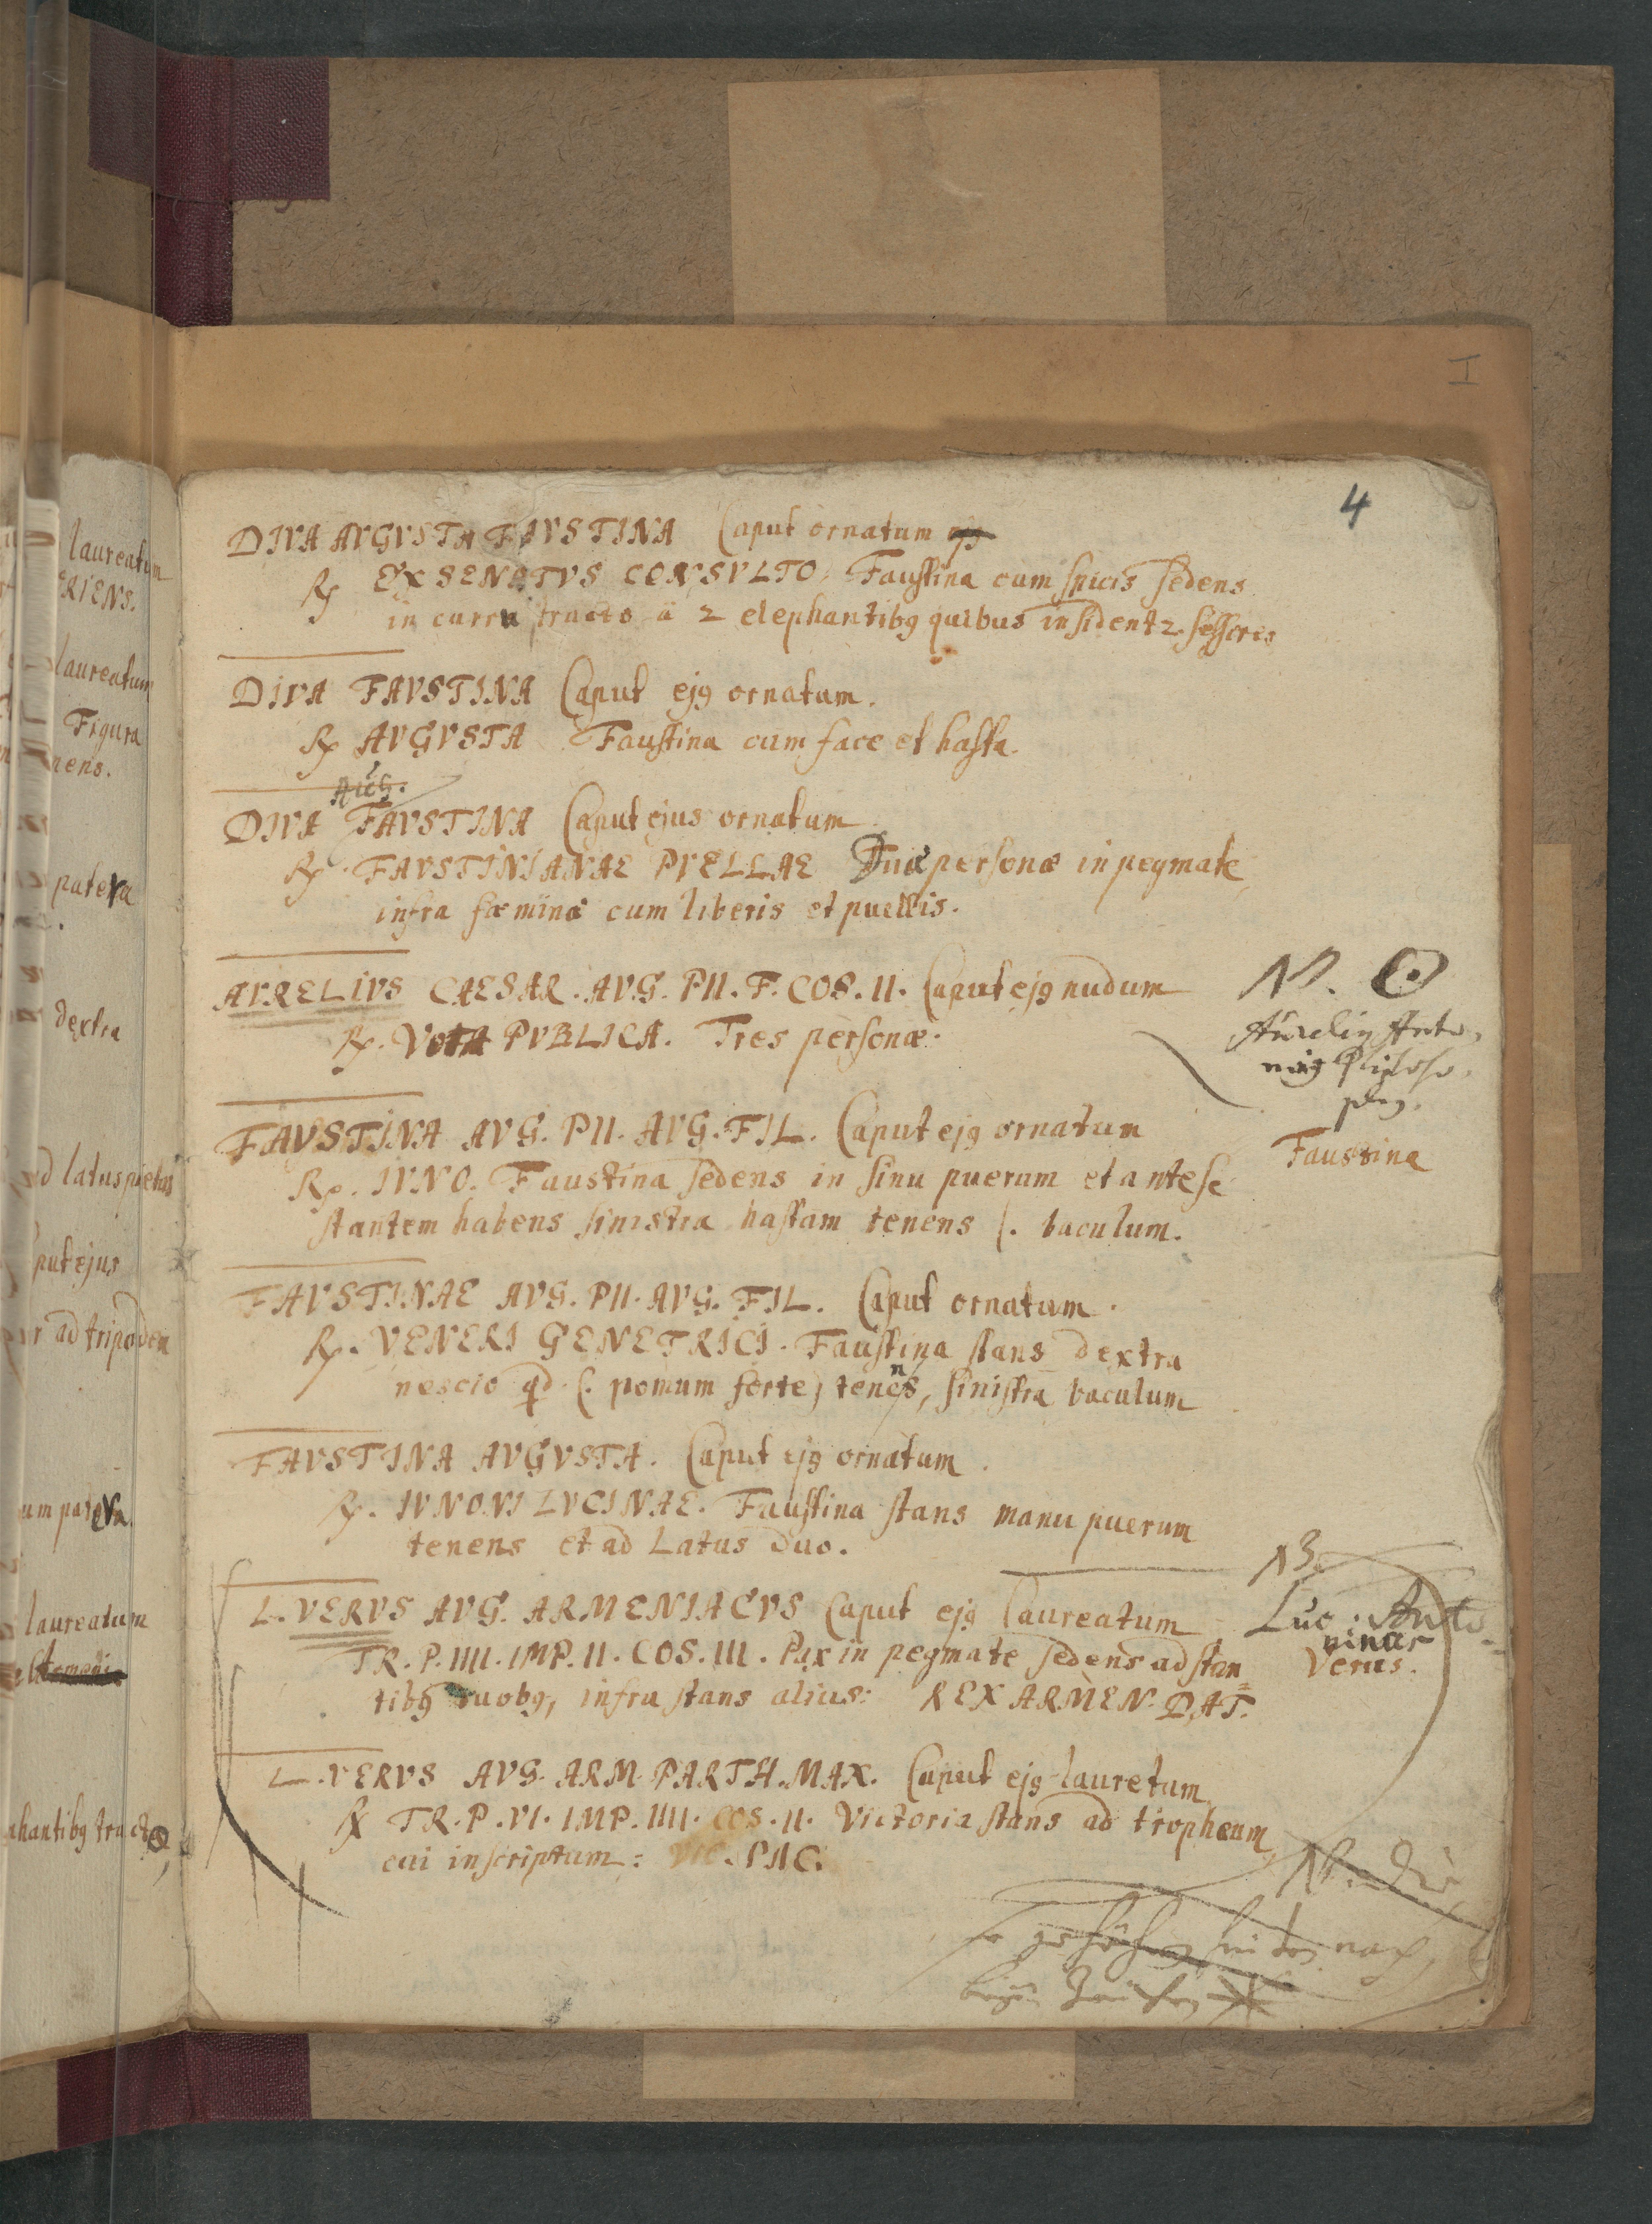 I
4
DIVA AVGVSTA FAVSTINA Caput ornatum
℞ EX SENATVS CONSVLTO. Faustina cum spicis sedens
in curru tracto à 2 elephantibꝯ quibus insident 2 sessores
DIVA FAVSTINA Caput ejꝯ ornatum.
℞ AVGVSTA Faustina cum face et hasta.
AUG.
DIVA FAVSTINA Caput ejus ornatum.
℞. FAVSTINIANAE PVELLAE Duæ personæ in pegmate
infra fœminæ cum liberis et puellis.
AVRELIVS CAESAR. AVG. PII. F. COS. II. Caput ejꝯ nudum
℞. VOTA PVBLICA. Tres personæ.
N. ☉
Aureliꝯ Anto-
ninꝯ Philoso-
phꝯ.
FAVSTINA AVG. PII. AVG. FIL. Caput ejꝯ ornatum
Faustina
℞. IVNO. Faustina sedens in sinu puerum et ante se
stantem habens sinistra hastam tenens s. baculum.
FAVSTINAE AVG. PII. AVG. FIL. Caput ornatum.
℞. VENERI GENETRICI. Faustina stans dextra
nescio qd (. pomum forte) tenens, sinistra baculum
FAVSTINA AVGVSTA. Caput ejꝯ ornatum.
℞. IVNONI LVCINAE. Faustina stans manu puerum
tenens et ad Latus duo.
L. VERVS AVG. ARMENIACVS Caput ejꝯ laureatum
NB.
Luc: Anto-
ninus
Verus.
TR. P. IIII. IMP. II. COS. III. Pax in pegmate sedens adstan=
tibꝯ duobꝯ, infra stans alius: REX ARMEN. DAT.
L. VERVS AVG. ARM. PARTH. MAX. Caput ejꝯ lauretum
℞ TR. P. VI. IMP. IIII. COS. II. Victoria stans ad tropheum
cui inscriptum: VIC. PAC.
NB. Die
so gehören hinten nach
beym Zeichen
laureatum
RIENS.
laureatum
Figura
nens.
patera
dextra
ad latus pietas
put ejus
r ad tripodem
um patera
laureatum
phantibꝯ tracto